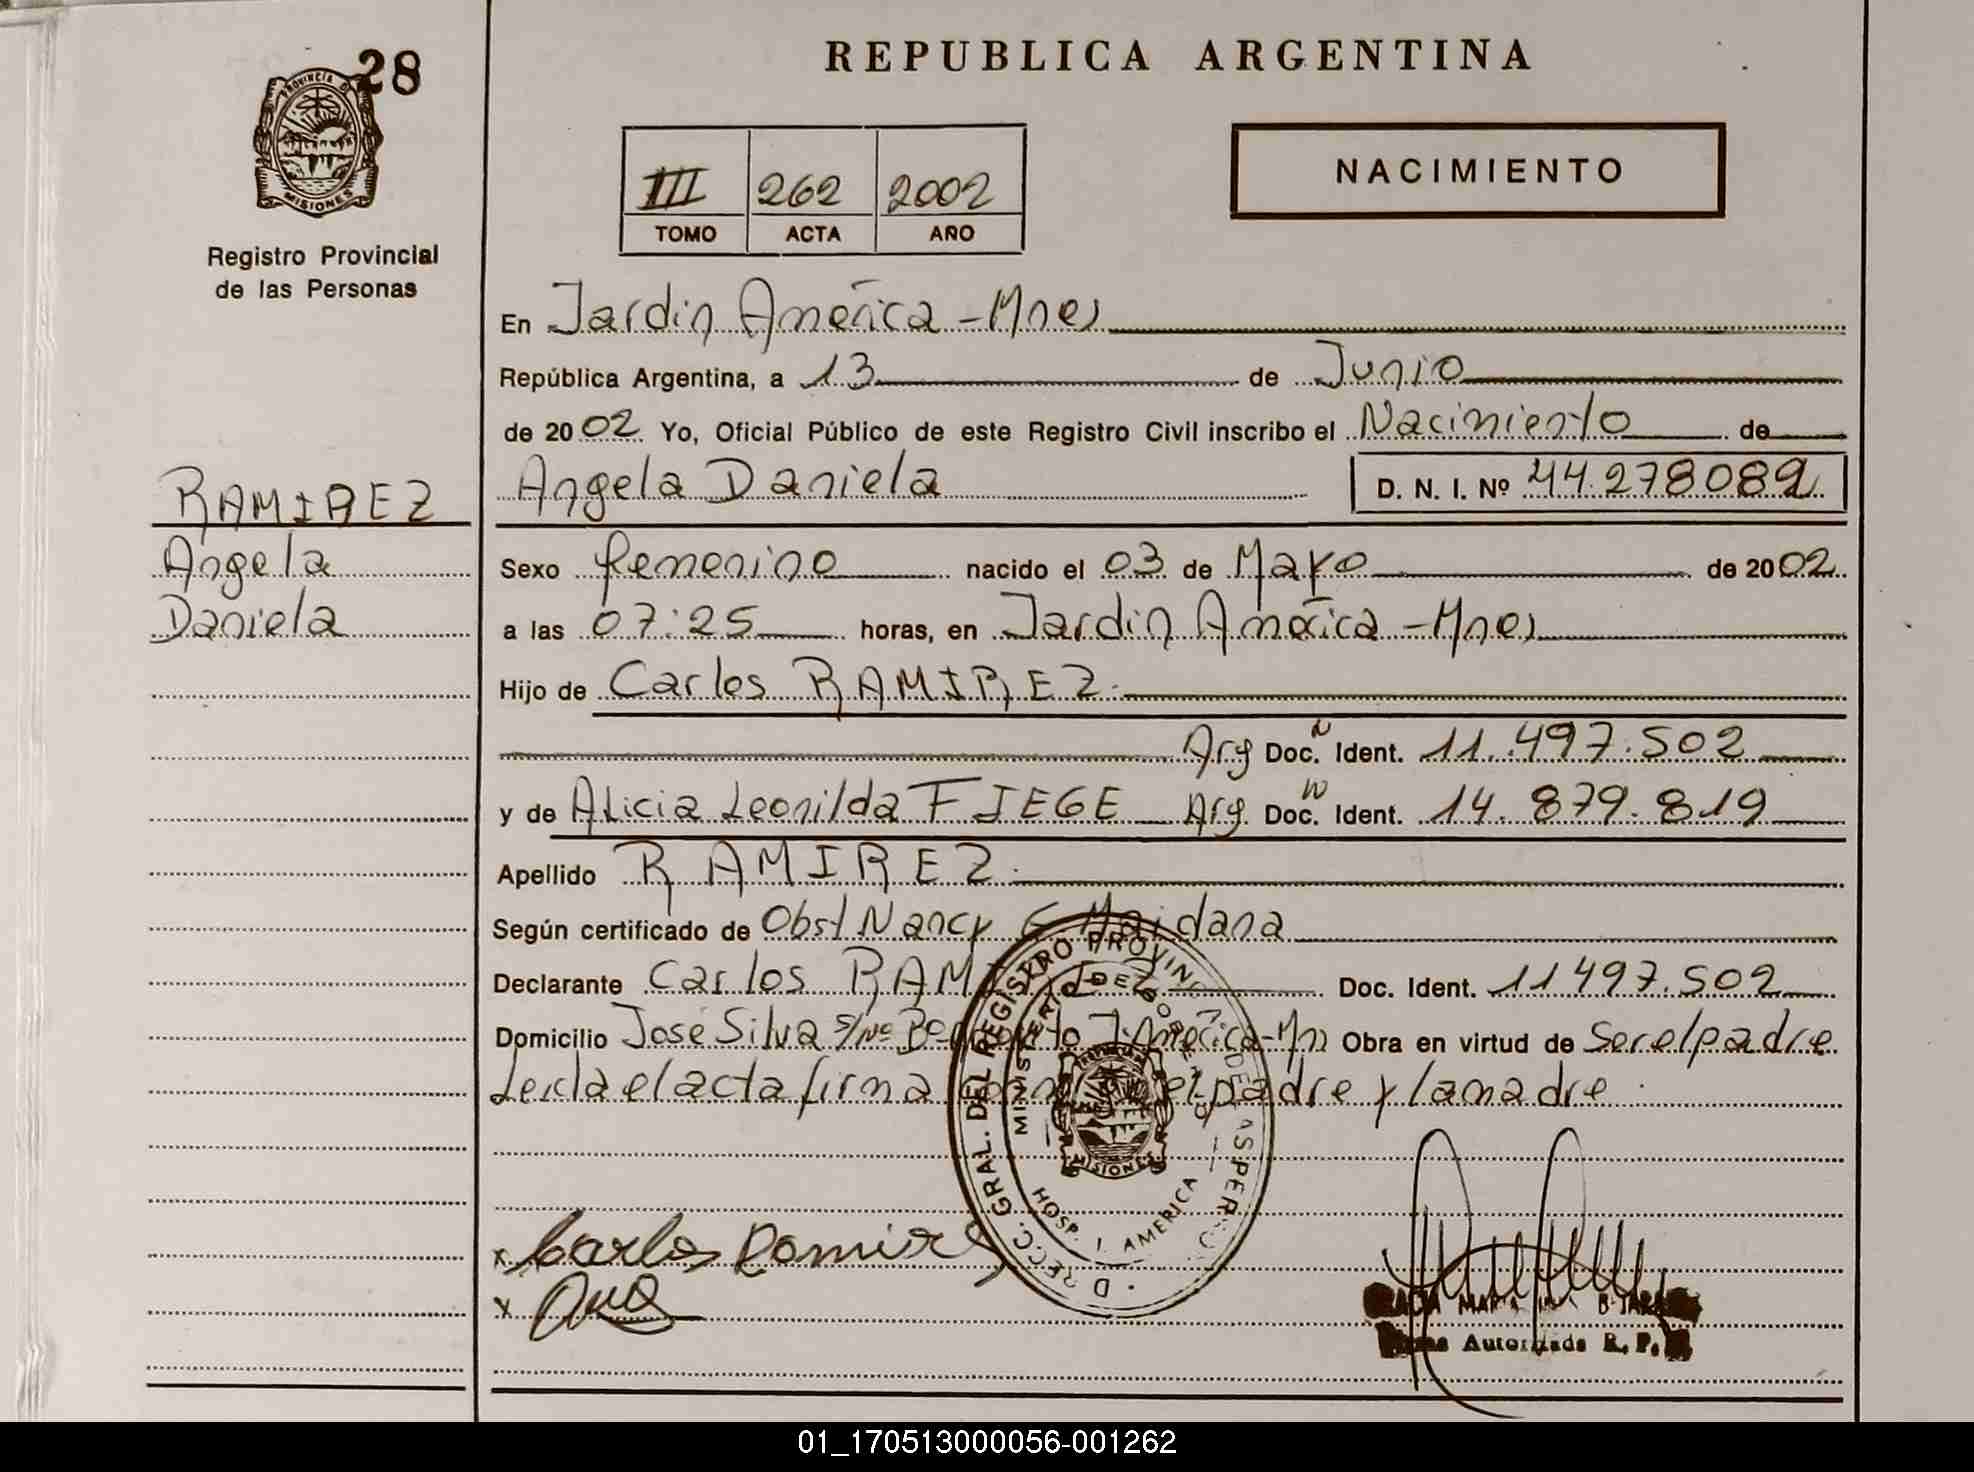 28
PROVINCIA DE
MISIONES
Registro Provincial
de las Personas
RAMIREZ
Angela
Daniela
REPUBLICA ARGENTINA
III 262 2002
TOMO ACTA AÑO
NACIMIENTO
En Jardin América - Mnes
República Argentina, a 13 de Junio
de 2002 Yo, Oficial Público de este Registro Civil inscribo el Nacimiento de
Angela Daniela D. N. I. Nº 44.278089
Sexo femenino nacido el 03 de Mayo de 2002
a las 07:25 horas, en Jardin América - Mnes
Hijo de Carlos RAMIREZ.
Arg Doc. N Ident. 11.497.502
y de Alicia Leonilda FIEGE Arg. Doc. N Ident. 14.879.819
Apellido RAMIREZ.
Según certificado de Obst Nancy E Maidana
Declarante Carlos RAMIREZ Doc. Ident. 11497.502
Domicilio José Silva s/Nº J. América - Mn Obra en virtud de Ser el padre
Leida el acta firma el padre y la madre.
GRAL. DEL REGISTRO
HOSP. J. AMERICA
MISIONES
x Carlos Ramirez
x
Autorizada R. P.
01_170513000056-001262